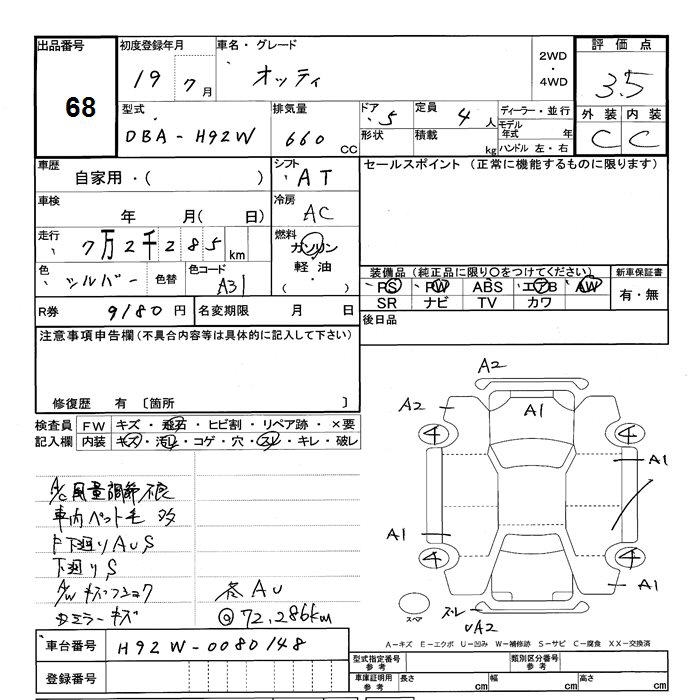 出品番号
68
初度登録年月
19 7月
車名・グレード
オッティ
2WD
・
4WD
評価点
3.5
型式
DBA-H92W
排気量
660 CC
ドア
5
形状
定員
4 人
積載
kg
ディーラー・並行
モデル年式 年
ハンドル 左・右
外装 内装
C C
車歴
自家用・( )
シフト
AT
セールスポイント (正常に機能するものに限ります)
車検
年 月( 日)
冷房
AC
走行
7万2千285km
燃料
ガソリン
軽油
( )
色
シルバー
色替
色コード
A31
装備品(純正品に限り○をつけてください)
新車保証書
PS PW ABS エアB AW
有・無
SR ナビ TV カワ
R券
9180円
名変期限 月 日
後日品
注意事項申告欄(不具合内容等は具体的に記入して下さい)
修復歴 有 〔箇所 〕
検査員記入欄
FW キズ・飛石・ヒビ割・リペア跡・×要
内装 キズ・汚れ・コゲ・穴・スレ・キレ・破レ
A/C風量調節不良
車内ペット毛 多
下廻りAUS
下廻りS
A/W キズ
ミラーキズ
各AU
@72,286km
A2
A2
A1
4
4
A1
A1
4
4
A1
スペア
スレ
UA2
A-キズ E-エクボ U-凹み W-補修跡 S-サビ C-腐食 XX-交換済
車台番号
H92W-0080148
登録番号
型式指定番号 参考
類別区分番号 参考
車庫証明用 参考
長さ cm
幅 cm
高さ cm